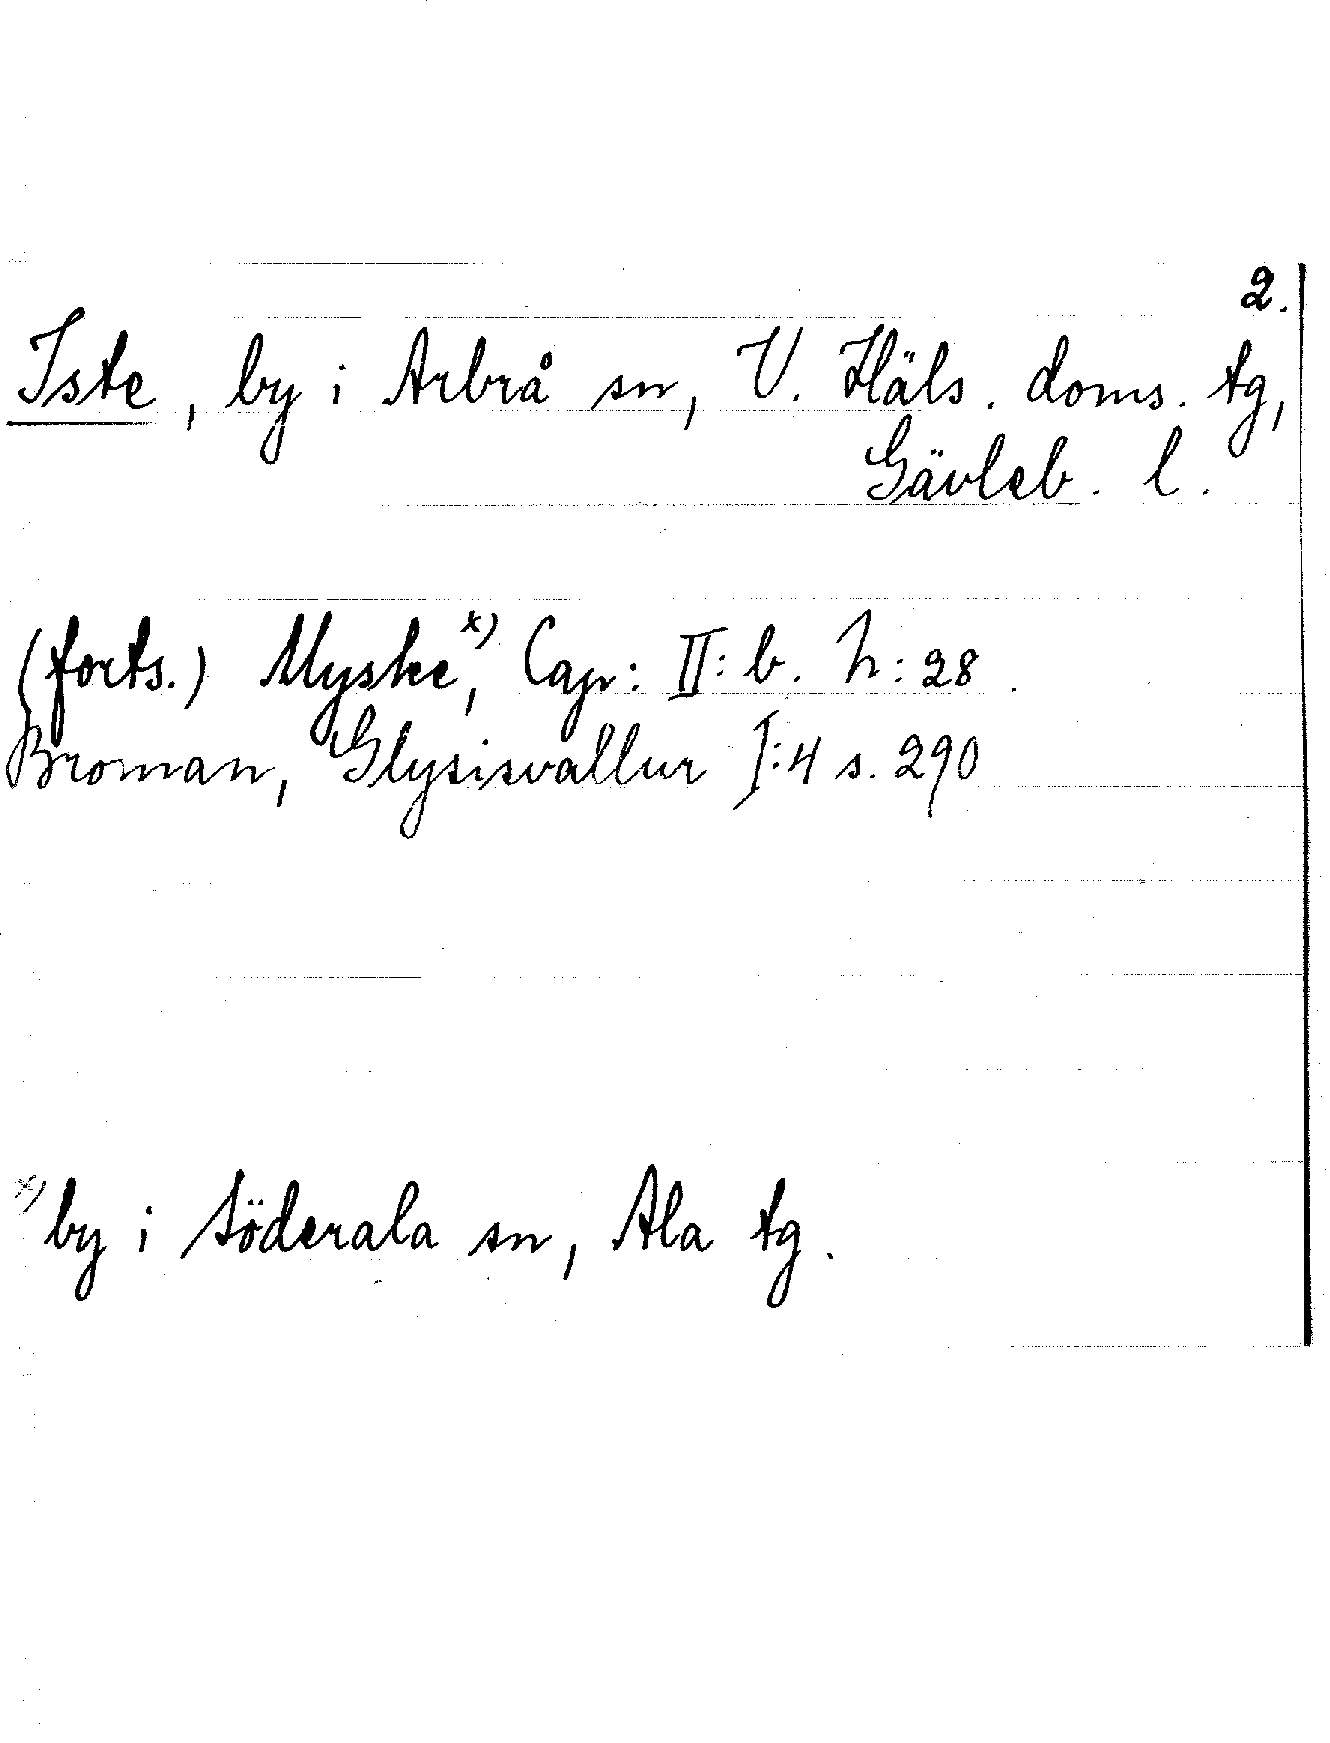 2.
Iste, by i Arbrå sn, V. Häls. doms. tg,
Gävleb. l.
(forts.) Myske,x) Cap: II: b. h: 28.
Broman, Glysisvallur I:4 s. 290
x) by i Söderala sn, Ala tg.